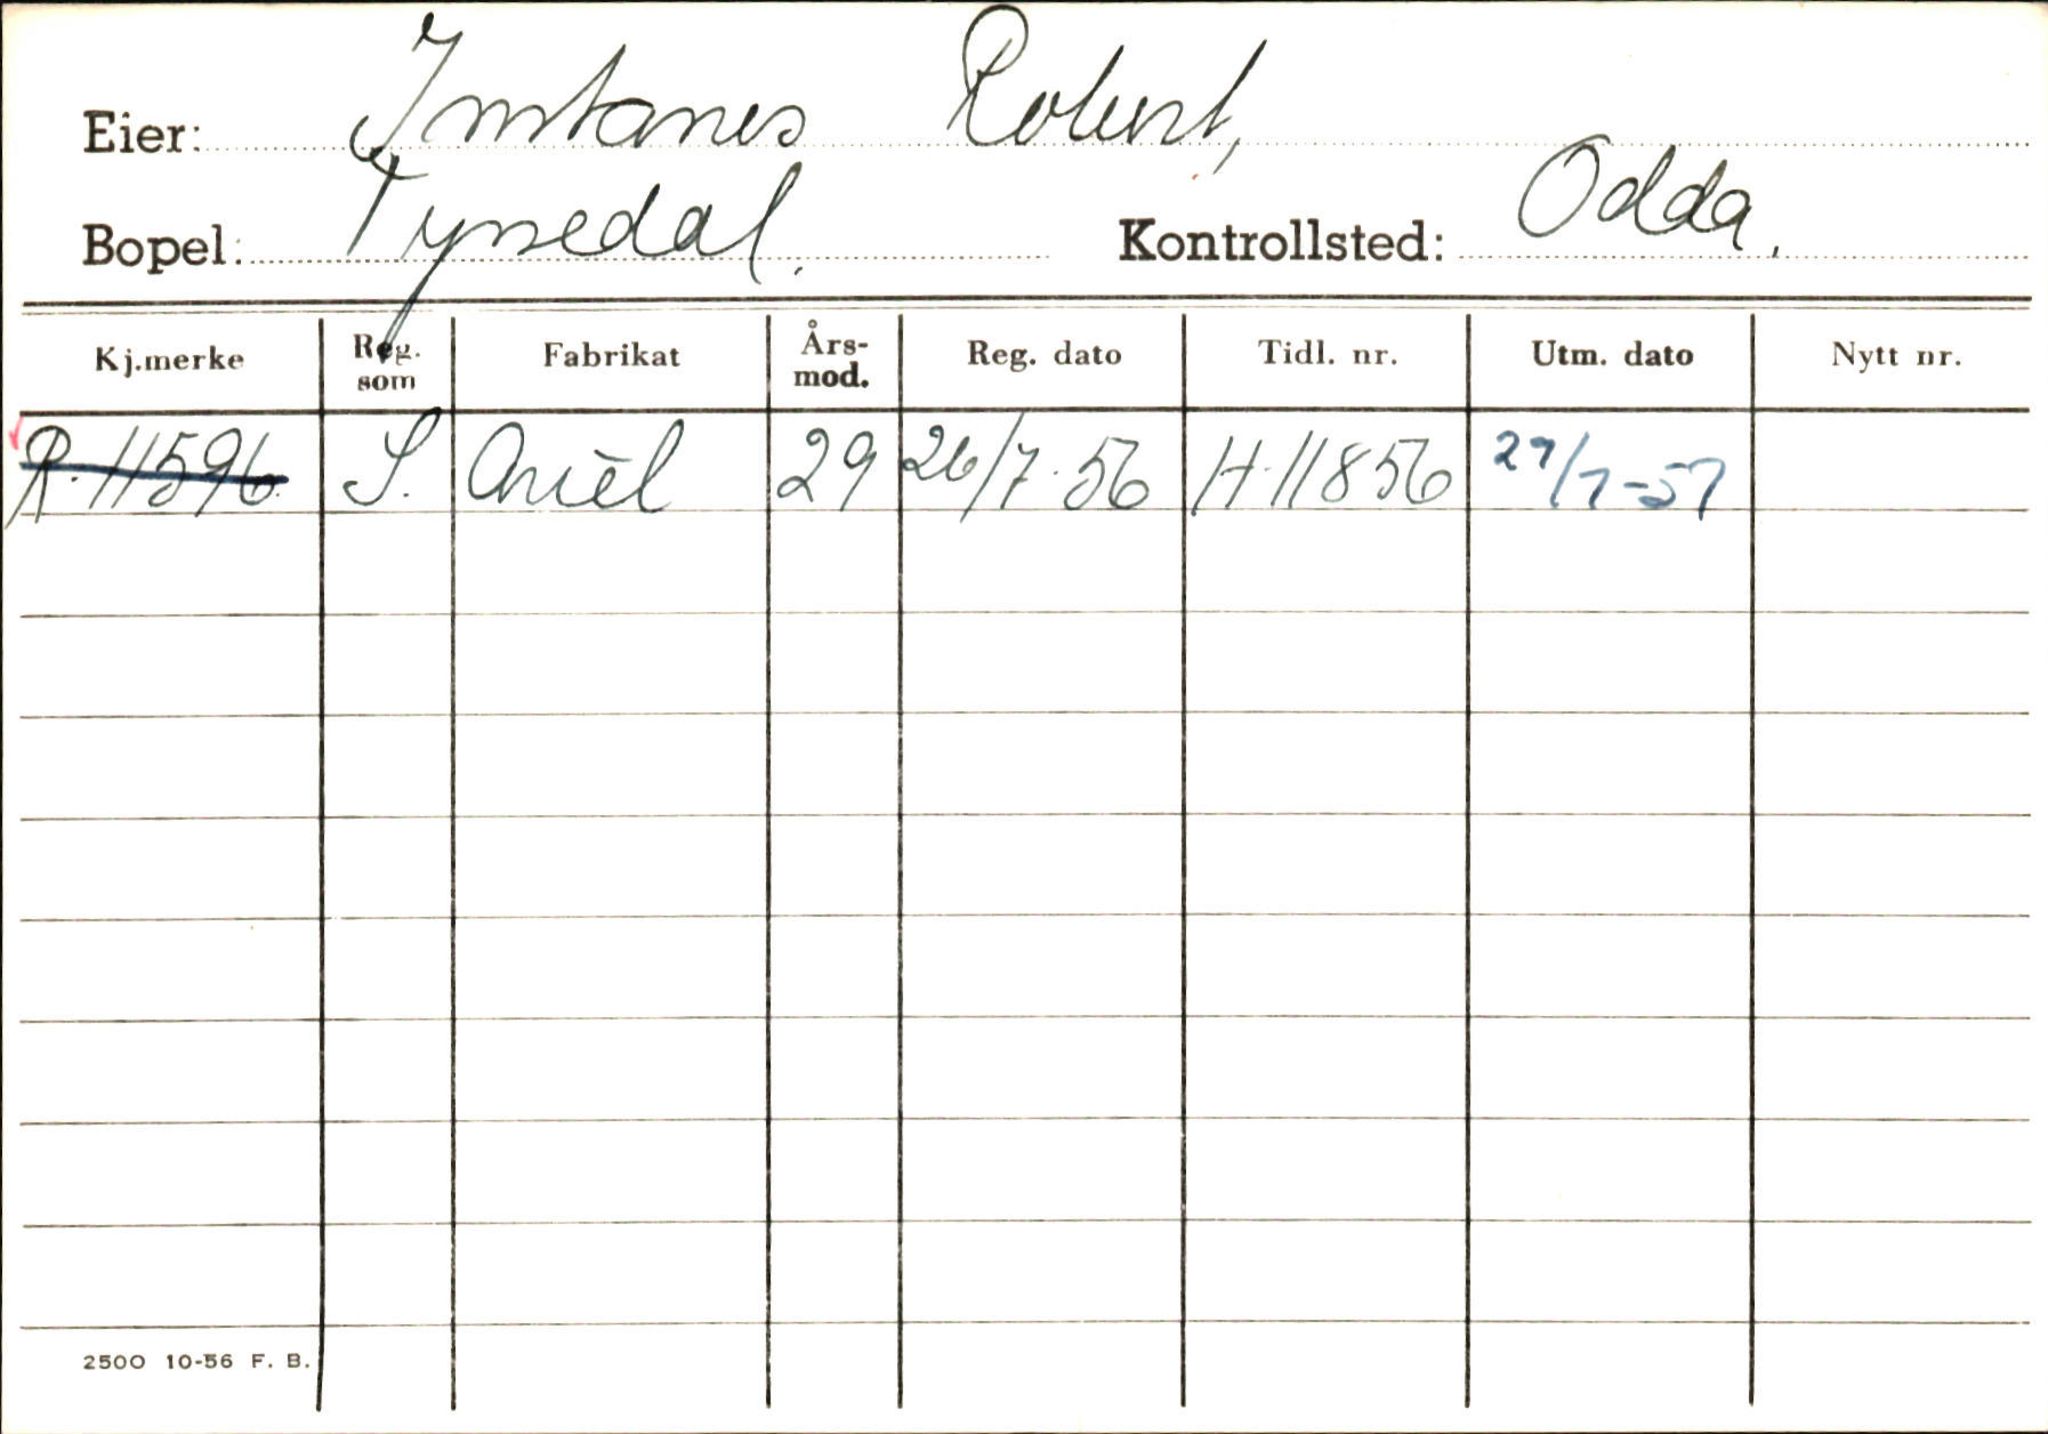 Eier: Instanes Robert,
Bopel: Tyssedal. Kontrollsted: Odda.
Kj.merke Reg. som Fabrikat Års-mod. Reg. dato Tidl. nr. Utm. dato Nytt nr.
R.11596. S. Ariel 29 26/7.56 H.11856 29/7-57
2500 10-56 F. B.